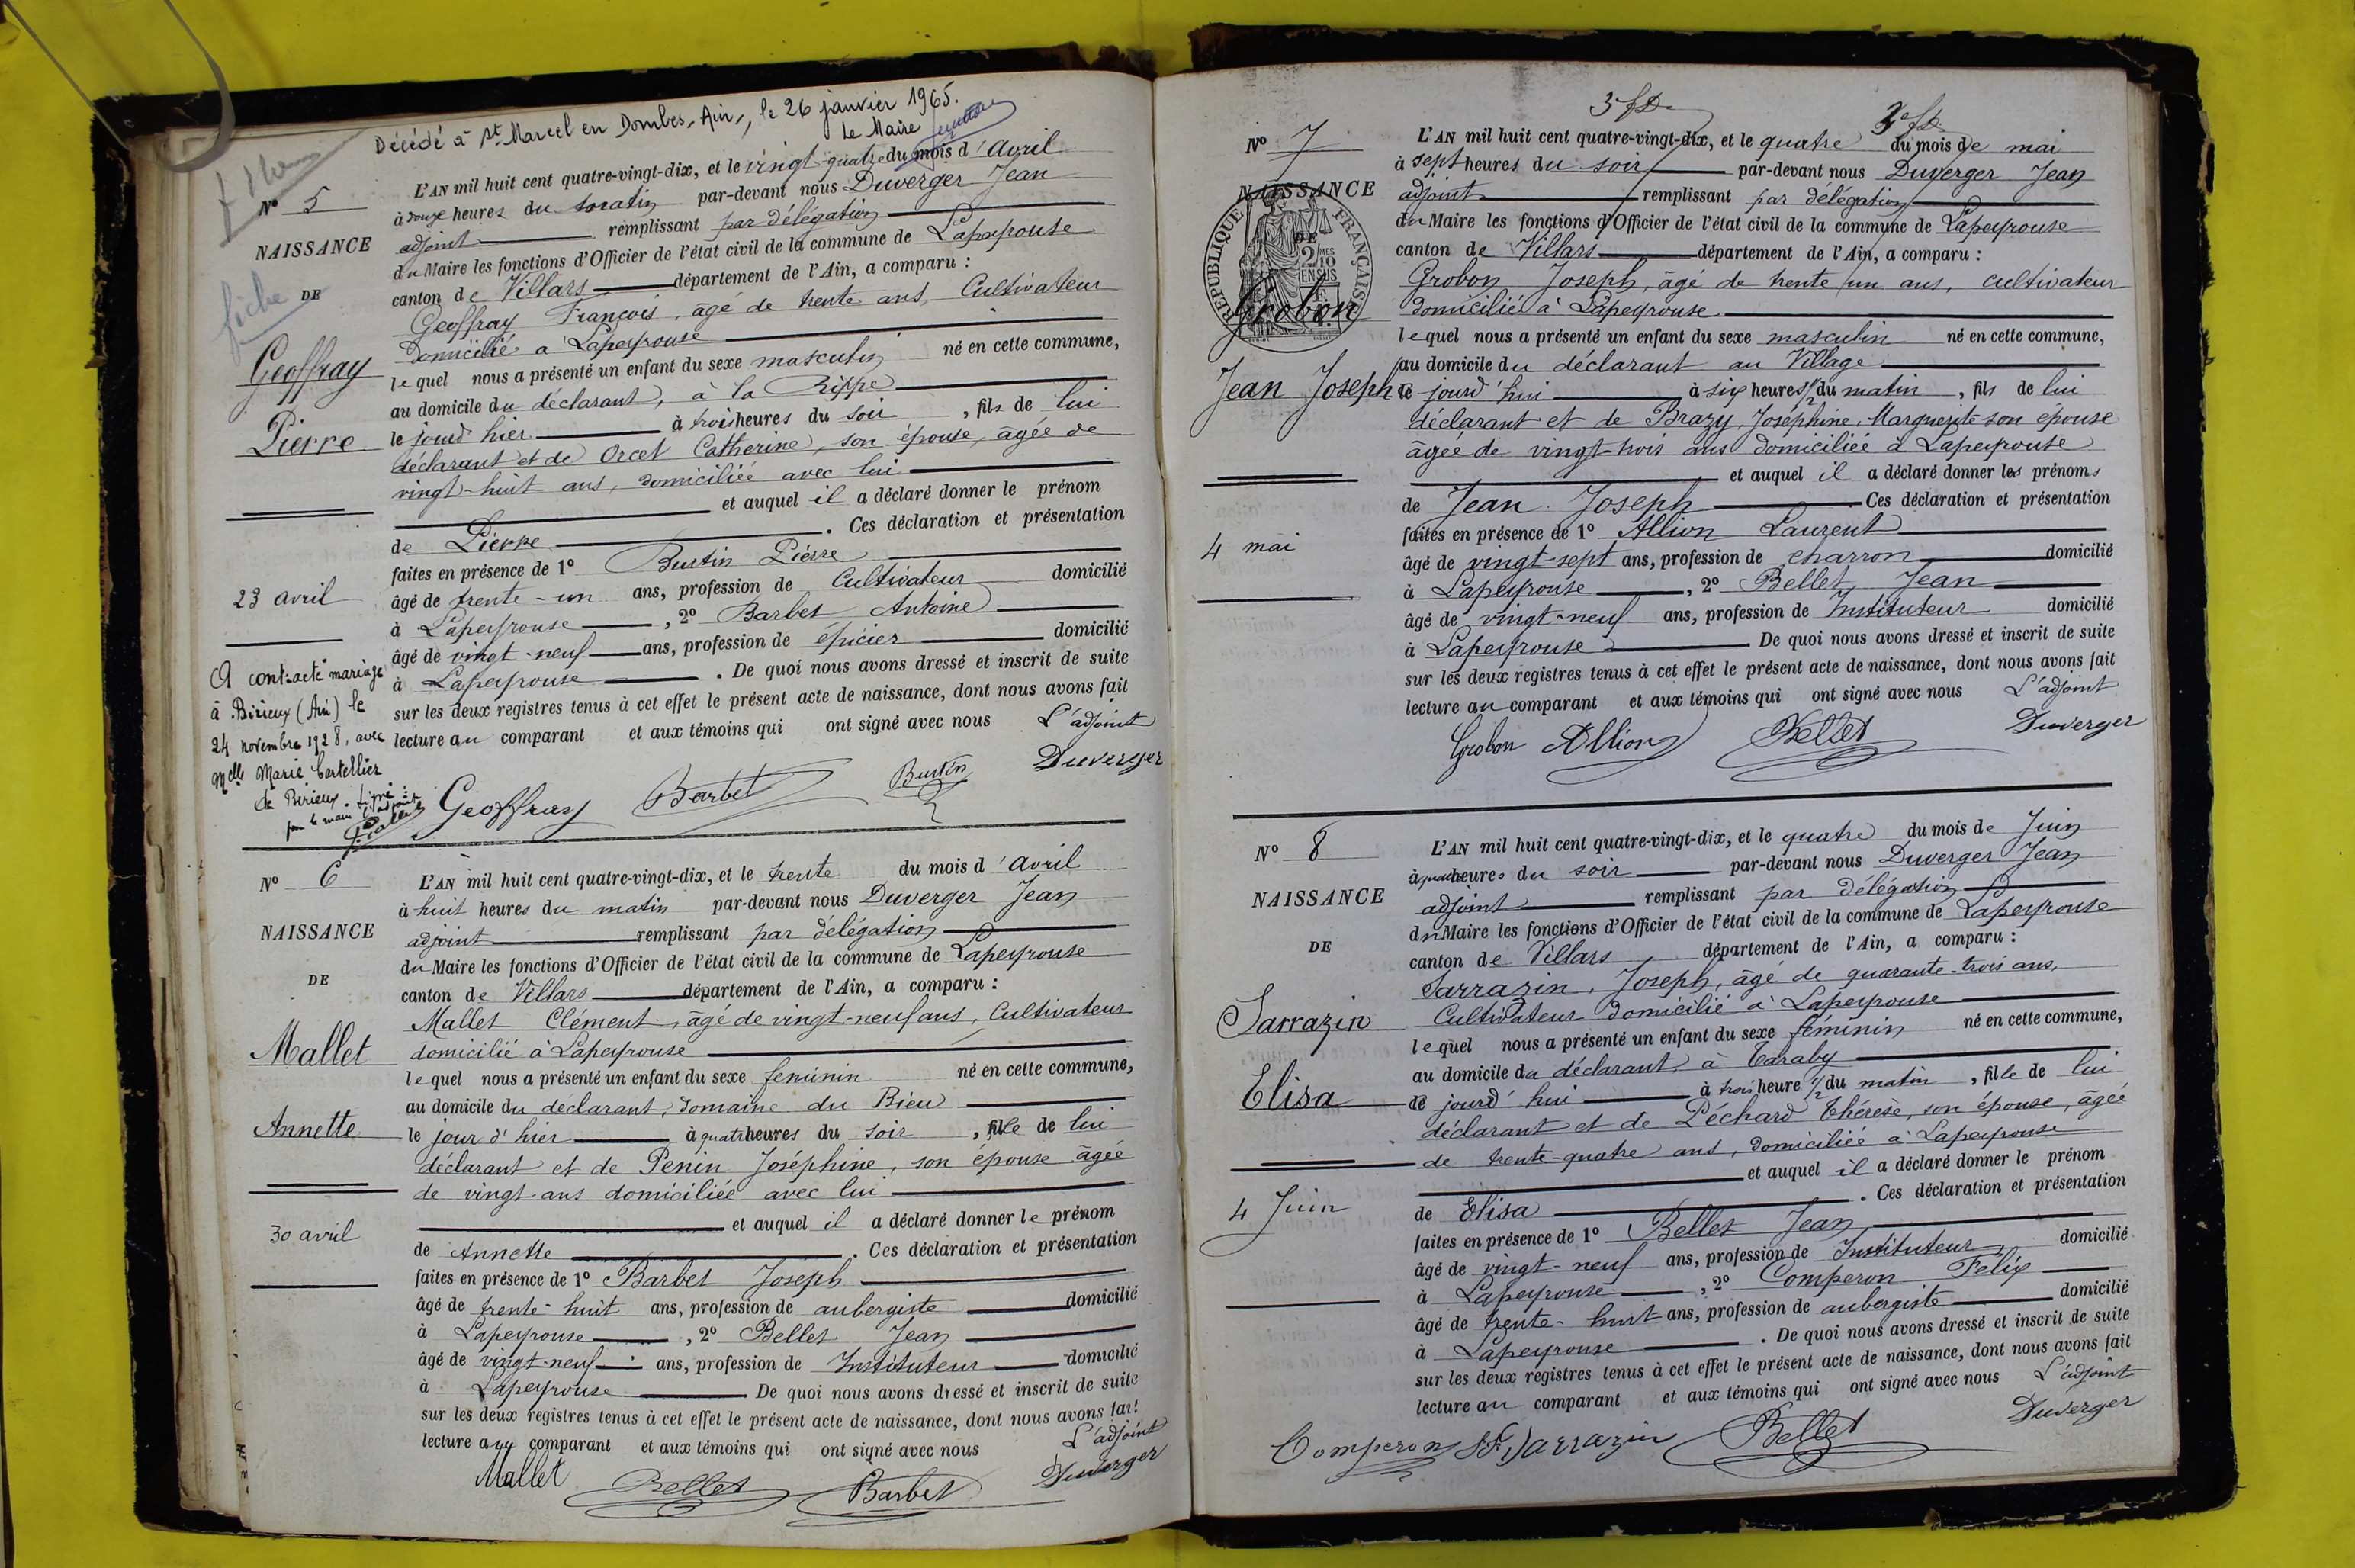 Décédé à St. Marcel en Dombes, Ain, le 26 janvier 1965.
Le Maire
No 5
NAISSANCE
DE
fiche
Geoffray
Pierre
23 avril
A contracté mariage
à Birieux (Ain) le
24 novembre 1928, avec
Melle Marie Cartellier
de Birieux. signé :
pour le maire l'adjoint
L'AN mil huit cent quatre-vingt-dix, et le vingt-quatre du mois d'Avril
à heures du matin par-devant nous Duverger Jean
adjoint remplissant par délégation
du Maire les fonctions d'Officier de l'état civil de la commune de Lapeyrouse
canton de Villars département de l'Ain, a comparu :
Geoffray François, âgé de trente ans, Cultivateur
domicilié à Lapeyrouse
lequel nous a présenté un enfant du sexe masculin né en cette commune,
au domicile du déclarant, à la Rippe
le jourd'hier à trois heures du soir, fils de lui
déclarant et de Orcet Catherine, son épouse, âgée de
vingt-huit ans, domiciliée avec lui
et auquel il a déclaré donner le prénom
de Pierre. Ces déclaration et présentation
faites en présence de 1º Burtin Pierre
âgé de trente-un ans, profession de Cultivateur domicilié
à Lapeyrouse, 2º Barbet Antoine
âgé de vingt-neuf ans, profession de épicier domicilié
à Lapeyrouse. De quoi nous avons dressé et inscrit de suite
sur les deux registres tenus à cet effet le présent acte de naissance, dont nous avons fait
lecture au comparant et aux témoins qui ont signé avec nous L'adjoint
Geoffray Barbet Burtin Duverger
No 6
NAISSANCE
DE
Mallet
Annette
30 avril
L'AN mil huit cent quatre-vingt-dix, et le trente du mois d'Avril
à huit heures du matin par-devant nous Duverger Jean
adjoint remplissant par délégation
du Maire les fonctions d'Officier de l'état civil de la commune de Lapeyrouse
canton de Villars département de l'Ain, a comparu :
Mallet Clément, âgé de vingt-neuf ans, Cultivateur
domicilié à Lapeyrouse
lequel nous a présenté un enfant du sexe féminin né en cette commune,
au domicile du déclarant, domaine du Rieu
le jour d'hier à quatre heures du soir, fille de lui
déclarant et de Penin Joséphine, son épouse âgée
de vingt ans domiciliée avec lui
et auquel il a déclaré donner le prénom
de Annette. Ces déclaration et présentation
faites en présence de 1º Barbet Joseph
âgé de trente-huit ans, profession de aubergiste domicilié
à Lapeyrouse, 2º Bellet Jean
âgé de vingt-neuf ans, profession de Instituteur domicilié
à Lapeyrouse De quoi nous avons dressé et inscrit de suite
sur les deux registres tenus à cet effet le présent acte de naissance, dont nous avons fait
lecture au comparant et aux témoins qui ont signé avec nous L'adjoint
Mallet Bellet Barbet Duverger
No 7
NAISSANCE
DE
REPUBLIQUE FRANÇAISE
2/10 MES
EN SUS
Grobon
Jean Joseph
4 mai
L'AN mil huit cent quatre-vingt-dix, et le quatre du mois de mai
à sept heures du soir par-devant nous Duverger Jean
adjoint remplissant par délégation
du Maire les fonctions d'Officier de l'état civil de la commune de Lapeyrouse
canton de Villars département de l'Ain, a comparu :
Grobon Joseph, âgé de trente un ans, cultivateur
domicilié à Lapeyrouse
lequel nous a présenté un enfant du sexe masculin né en cette commune,
au domicile du déclarant au Village
ce jourd'hui à six heures 1/2 du matin, fils de lui
déclarant et de Brazy, Joséphine, Marguerite son épouse
âgée de vingt-trois ans domiciliée à Lapeyrouse
et auquel il a déclaré donner les prénoms
de Jean Joseph Ces déclaration et présentation
faites en présence de 1º Allion Laurent
âgé de vingt-sept ans, profession de charron domicilié
à Lapeyrouse, 2º Bellet Jean
âgé de vingt-neuf ans, profession de Instituteur domicilié
à Lapeyrouse De quoi nous avons dressé et inscrit de suite
sur les deux registres tenus à cet effet le présent acte de naissance, dont nous avons fait
lecture au comparant et aux témoins qui ont signé avec nous L'adjoint
Grobon Allion Bellet Duverger
No 8
NAISSANCE
DE
Sarrazin
Elisa
4 Juin
L'AN mil huit cent quatre-vingt-dix, et le quatre du mois de Juin
à quatre heures du soir par-devant nous Duverger Jean
adjoint remplissant par délégation
du Maire les fonctions d'Officier de l'état civil de la commune de Lapeyrouse
canton de Villars département de l'Ain, a comparu :
Sarrazin, Joseph, âgé de quarante-trois ans,
Cultivateur domicilié à Lapeyrouse
lequel nous a présenté un enfant du sexe féminin né en cette commune,
au domicile du déclarant, à Caraby
ce jourd'hui à trois heure 1/2 du matin, fille de lui
déclarant et de Péchard Thérèse, son épouse, âgée
de trente-quatre ans, domiciliée à Lapeyrouse
et auquel il a déclaré donner le prénom
de Elisa. Ces déclaration et présentation
faites en présence de 1º Bellet Jean
âgé de vingt-neuf ans, profession de Instituteur domicilié
à Lapeyrouse, 2º Comperon Félix
âgé de trente-huit ans, profession de aubergiste domicilié
à Lapeyrouse. De quoi nous avons dressé et inscrit de suite
sur les deux registres tenus à cet effet le présent acte de naissance, dont nous avons fait
lecture au comparant et aux témoins qui ont signé avec nous L'adjoint
Comperon Sarrazin Bellet Duverger